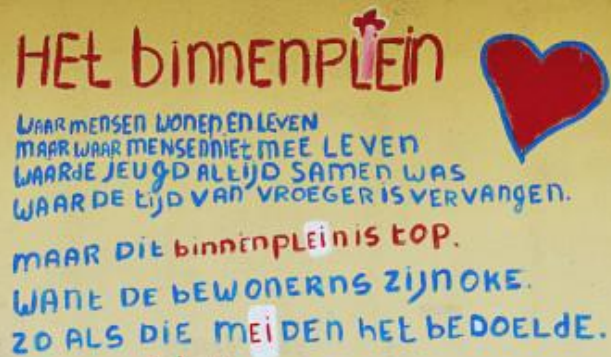 HEt binnENPLEin
WAAR mENSEN WONEN EN LEVEN
MAAR WAAR MENSENNIET MEE LEVEN
WAARdE JEUgD ALtiJD SAMEN WAS
WAAR DE tijD VAN VROEGER IS VERVANgEn.
MAAR Dit binnEnpLEin is top.
WANt DE bEWONERNS ZijN OKE.
ZO ALS DiE MEiDEN hEt bEDOELdE.